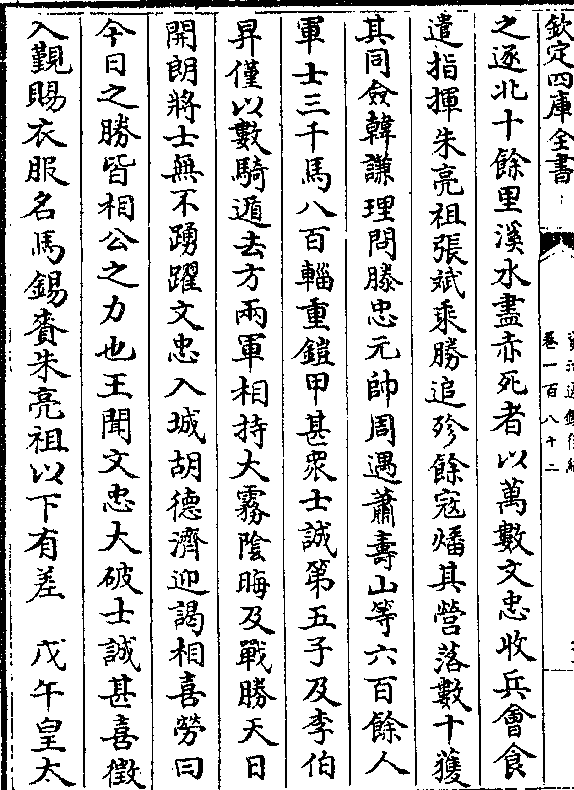 欽定四庫全書
卷一百八十二
之逐北十餘里溪水盡赤死者以萬數文忠收兵會食
遣指揮朱亮祖張斌乘勝追殄餘寇燔其營落數十獲
其同僉韓謙理問滕忠元帥周遇蕭壽山等六百餘人
軍士三千馬八百輜重鎧甲甚衆士誠第五子及李伯
昇僅以數騎遁去方兩軍相持大霧陰晦及戰勝天日
開朗將士無不踴躍文忠入城胡德濟迎謁相喜勞曰
今日之勝皆相公之力也王聞文忠大破士誠甚喜徵
入覲賜衣服名馬錫賚朱亮祖以下有差　戊午皇太